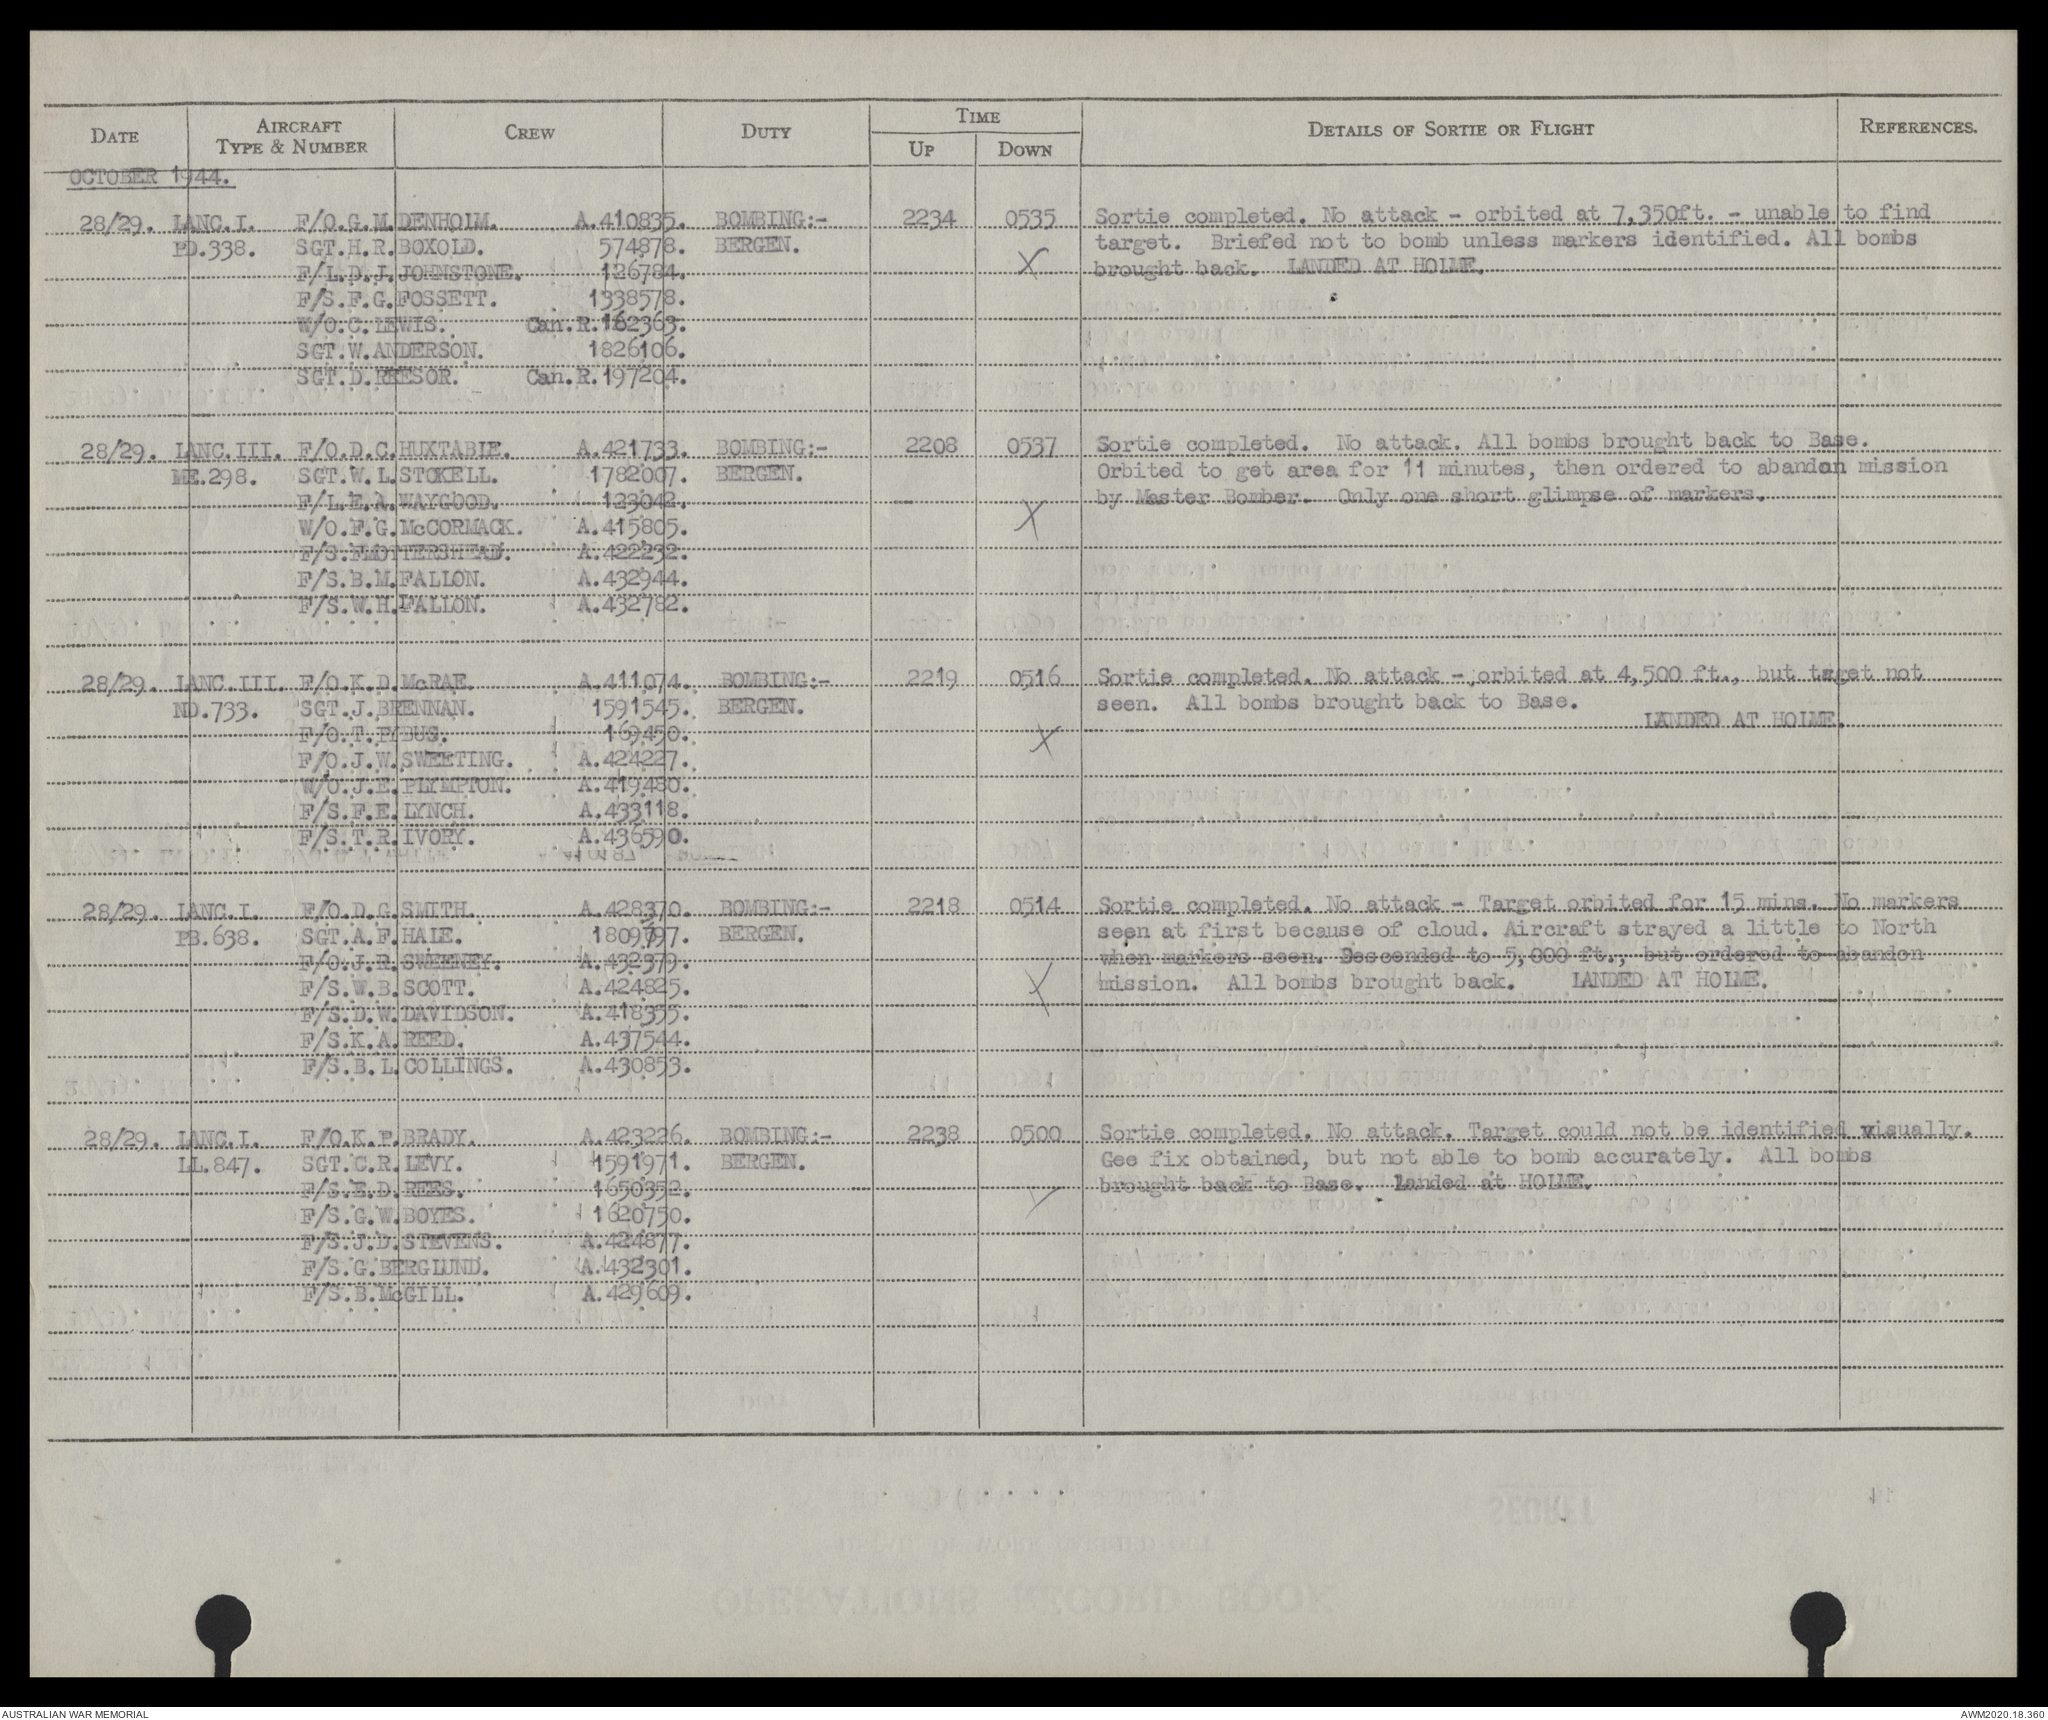 DATE AIRCRAFT TYPE & NUMBER CREW DUTY TIME UP DOWN DETAILS OF SORTIE OR FLIGHT REFERENCES.
OCTOBER 1944.
28/29. LANC.I. F/O.G.M.DENHOLM. A.410835. BOMBING:- 2234 0535 Sortie completed. No attack - orbited at 7,350ft. - unable to find
PD.338. SGT.H.R.BOXOLD. 574878. BERGEN. target. Briefed not to bomb unless markers identified. All bombs
F/L.D.J.JOHNSTONE. 126784. X brought back. LANDED AT HOLME.
F/S.F.G.FOSSETT. 1338578.
W/O.C.LEWIS. Can.R.162363.
SGT.W.ANDERSON. 1826106.
SGT.D.REESOR. Can.R.197204.
28/29. LANC.III. F/O.D.C.HUXTABLE. A.421733. BOMBING:- 2208 0537 Sortie completed. No attack. All bombs brought back to Base.
ME.298. SGT.W.L.STOKELL. 1782007. BERGEN. Orbited to get area for 11 minutes, then ordered to abandon mission
F/L.E.A.WAYGOOD. 123042. X by Master Bomber. Only one short glimpse of markers.
W/O.F.G.McCORMACK. A.415805.
F/S.FLOTTERSHEAD. A.422232.
F/S.B.M.FALLON. A.432944.
F/S.W.H.FALLON. A.432782.
28/29. LANC.III. F/O.K.D.McRAE. A.411074. BOMBING:- 2219 0516 Sortie completed. No attack - orbited at 4,500 ft., but target not
ND.733. SGT.J.BRENNAN. 1591545. BERGEN. seen. All bombs brought back to Base.
F/O.T.PYBUS. 169450. X LANDED AT HOLME.
F/O.J.W.SWEETING. A.424227.
W/O.J.E.PLYMPTON. A.419480.
F/S.F.E.LYNCH. A.433118.
F/S.T.R.IVORY. A.436590.
28/29. LANC.I. F/O.D.G.SMITH. A.428370. BOMBING:- 2218 0514 Sortie completed. No attack - Target orbited for 15 mins. No markers
PB.638. SGT.A.F.HALE. BERGEN. seen at first because of cloud. Aircraft strayed a little to North
F/O.J.R.SWEENEY. A.432379. when markers seen. Descended to 5,000 ft., but ordered to abandon
F/S.W.B.SCOTT. A.424825. X mission. All bombs brought back. LANDED AT HOLME.
F/S.D.W.DAVIDSON. A.418355.
F/S.K.A.REED. A.437544.
F/S.B.L.COLLINGS. A.430853.
28/29. LANC.I. F/O.K.P.BRADY. A.423226. BOMBING:- 2238 0500 Sortie completed. No attack. Target could not be identified visually.
LL.847. SGT.C.R.LEVY. 1591971. BERGEN. Gee fix obtained, but not able to bomb accurately. All bombs
F/S.E.D.REES. 1650352. brought back to Base. Landed at HOLME.
F/S.G.W.BOYES. 1620750.
F/S.J.D.STEVENS. A.424877.
F/S.G.BERGLUND. A.432301.
F/S.B.McGILL. A.429609.
AUSTRALIAN WAR MEMORIAL AWM2020.18.360